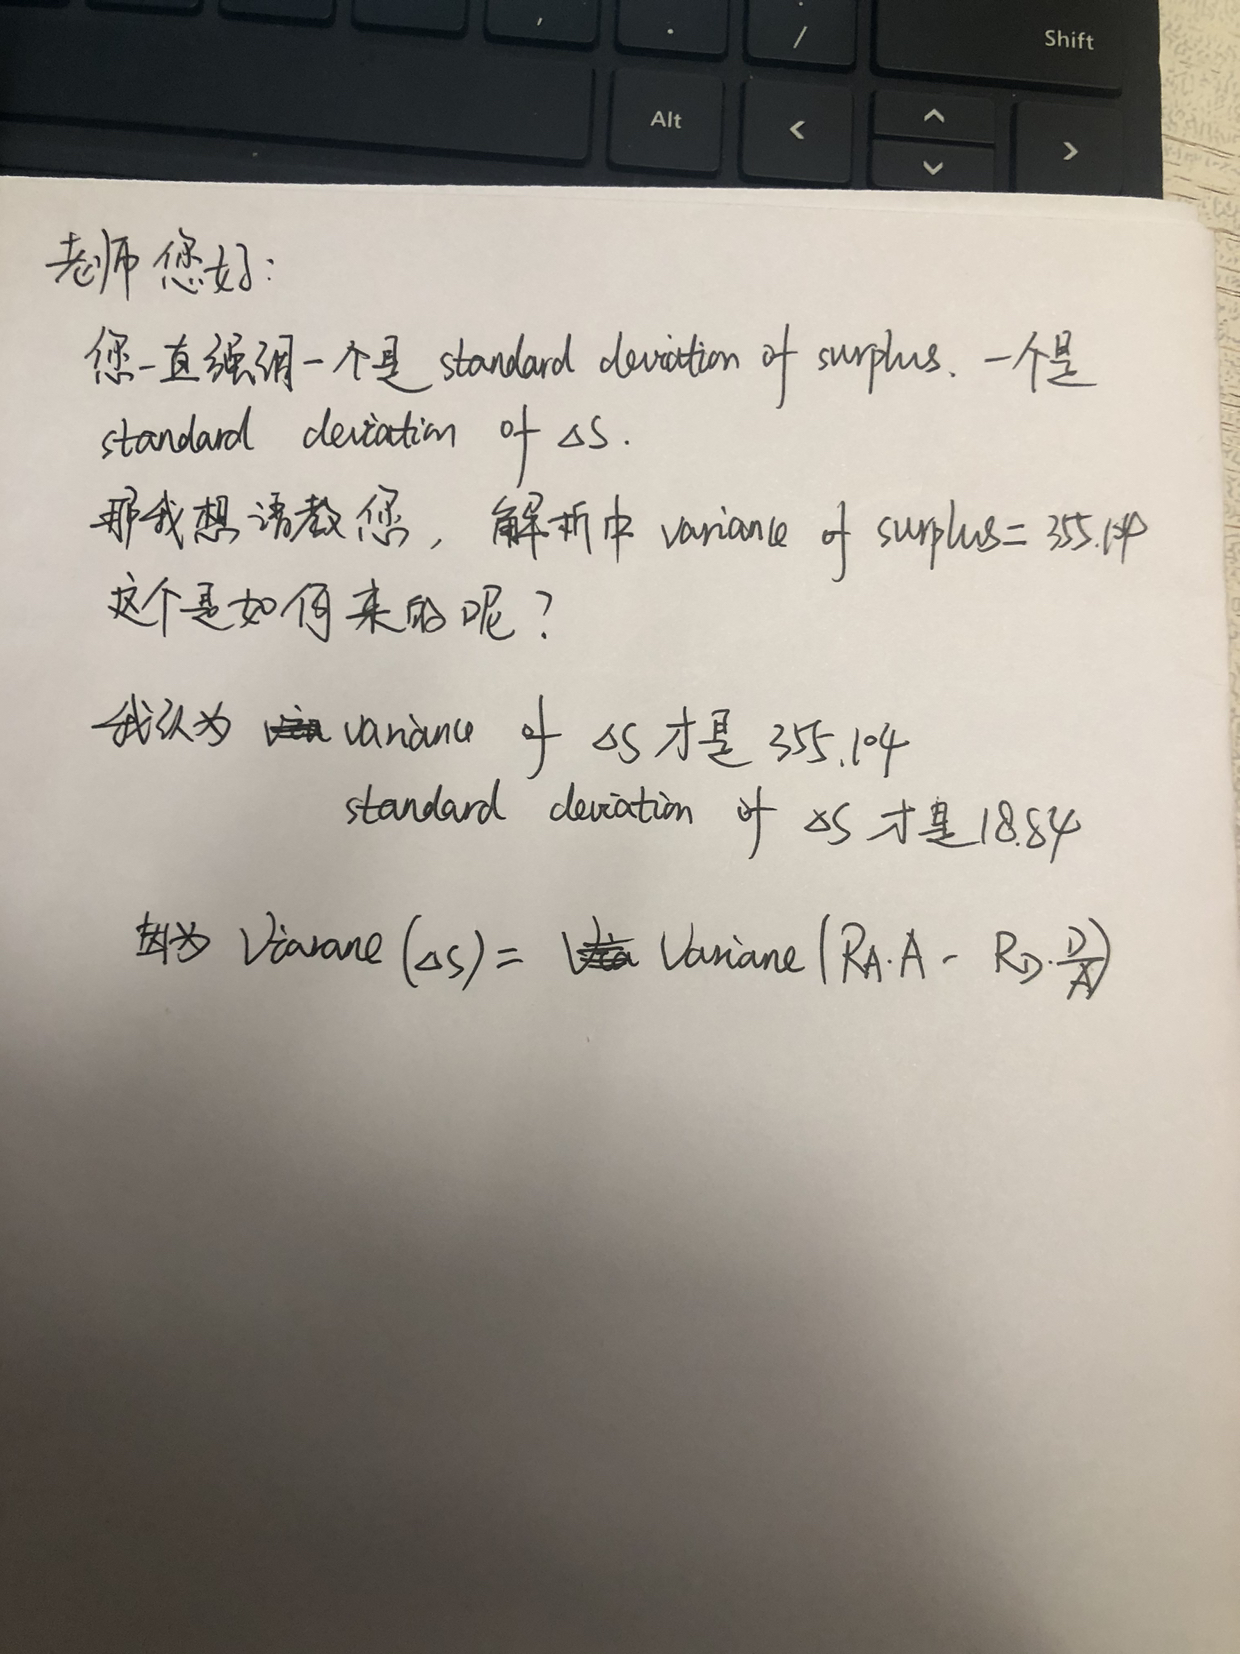 ,
.
/
Shift
Alt
<
^
>
老师您好:
您一直强调一个是 standard deviation of surplus. 一个是
standard deviation of ΔS.
那我想请教您, 解析中 variance of surplus = 355.104
这个是如何来的呢?
我认为 variance of ΔS 才是 355.104
standard deviation of ΔS 才是 18.84
因为 Viarane (ΔS) = Variane (RA·A - RD·D/A)